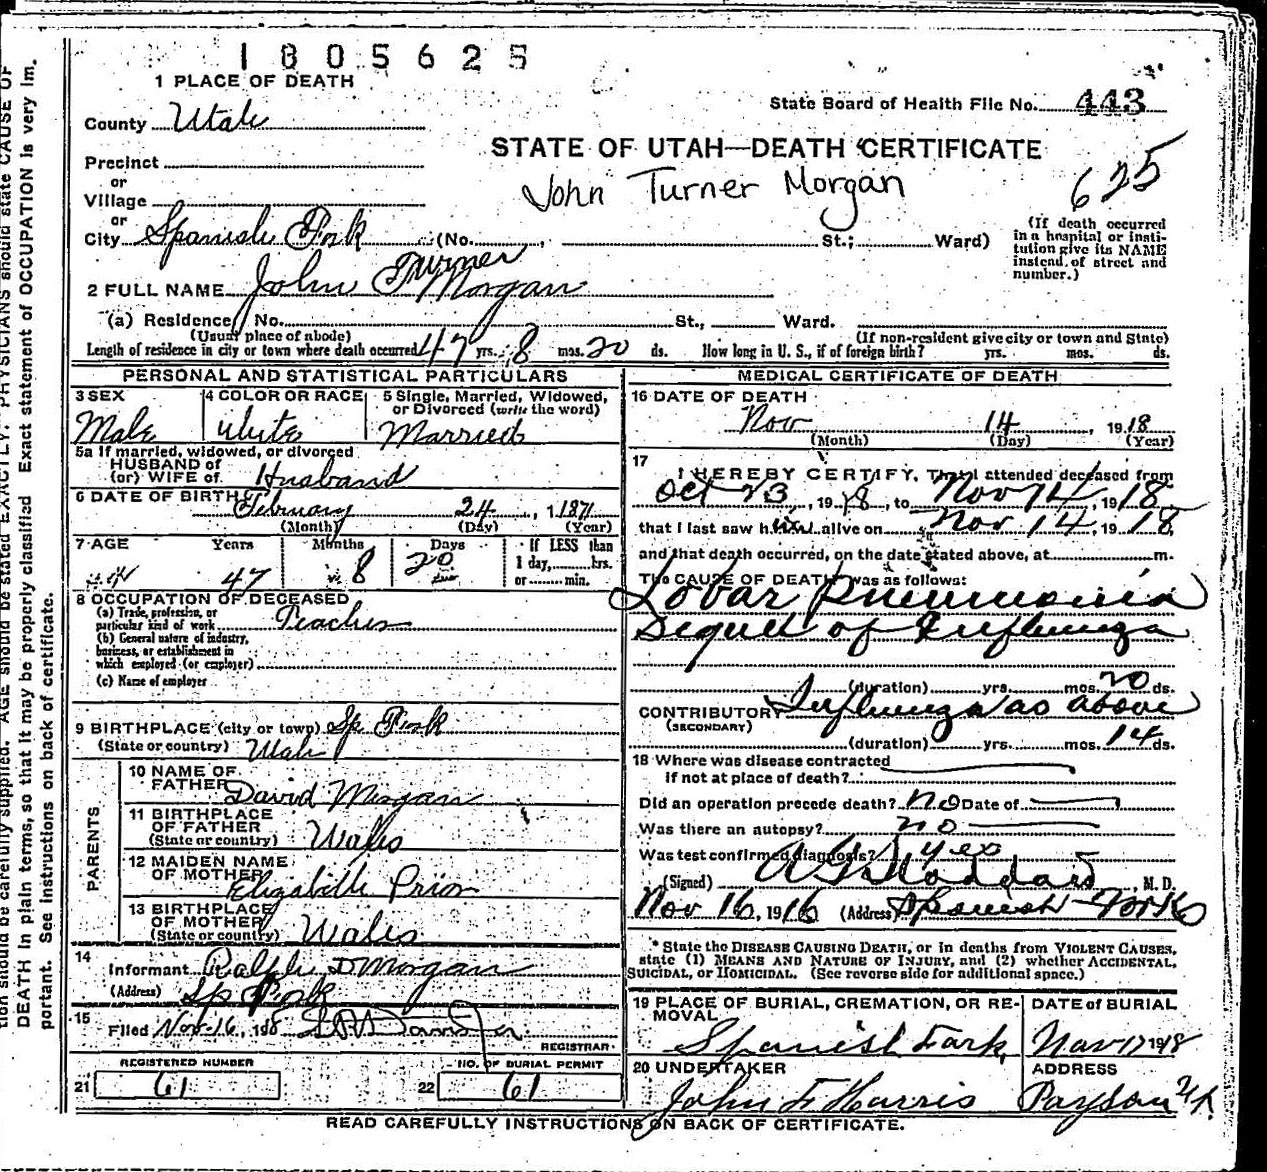 1805625
1 PLACE OF DEATH
State Board of Health File No. 443
County Utah
STATE OF UTAH—DEATH CERTIFICATE
Precinct
John Turner Morgan
625
or
Village
or
City Spanish Fork (No. , St.; Ward)
(If death occurred in a hospital or institution give its NAME instead of street and number.)
Turner
2 FULL NAME John Morgan
(a) Residence No. St., Ward.
(Usual place of abode) (If non-resident give city or town and State)
Length of residence in city or town where death occurred 47 yrs. 8 mos. 20 ds. How long in U. S., if of foreign birth? yrs. mos. ds.
PERSONAL AND STATISTICAL PARTICULARS
3 SEX
Male
4 COLOR OR RACE
White
5 Single, Married, Widowed, or Divorced (write the word)
Married
5a If married, widowed, or divorced
HUSBAND of
(or) WIFE of. Husband
6 DATE OF BIRTH
February 24, 1871
(Month) (Day) (Year)
7 AGE Years Months Days If LESS than
1 day, hrs.
47 8 20 or min.
8 OCCUPATION OF DECEASED
(a) Trade, profession, or
particular kind of work Teacher
(b) General nature of industry,
business, or establishment in
which employed (or employer)
(c) Name of employer
9 BIRTHPLACE (city or town) Sp Fork
(State or country) Utah
PARENTS
10 NAME OF
FATHER David Morgan
11 BIRTHPLACE
OF FATHER
(State or country) Wales
12 MAIDEN NAME
OF MOTHER Elizabeth Prior
13 BIRTHPLACE
OF MOTHER
(State or country) Wales
14
Informant Ralph D Morgan
(Address) Sp Fork
15
Filed Nov 16, 1918
REGISTRAR
REGISTERED NUMBER NO. OF BURIAL PERMIT
21 61 22 61
MEDICAL CERTIFICATE OF DEATH
16 DATE OF DEATH
Nov 14, 1918
(Month) (Day) (Year)
17
I HEREBY CERTIFY, That I attended deceased from
Oct 23, 1918, to Nov 14, 1918
that I last saw him alive on Nov 14, 1918,
and that death occurred, on the date stated above, at m.
The CAUSE OF DEATH was as follows:
Lobar Pneumonia
Sequel of Influenza
(duration) yrs. mos. 20 ds.
CONTRIBUTORY Influenza as above
(SECONDARY)
(duration) yrs. mos. 14 ds.
18 Where was disease contracted
if not at place of death?
Did an operation precede death? no Date of
Was there an autopsy? no
Was test confirmed diagnosis? yes
(Signed) A G Stoddard, M. D.
Nov 16, 1916 (Address) Spanish Fork
* State the DISEASE CAUSING DEATH, or in deaths from VIOLENT CAUSES,
state (1) MEANS AND NATURE OF INJURY, and (2) whether ACCIDENTAL,
SUICIDAL, or HOMICIDAL. (See reverse side for additional space.)
19 PLACE OF BURIAL, CREMATION, OR REMOVAL
Spanish Fork
DATE of BURIAL
Nov 17 1918
20 UNDERTAKER
John F Harris
ADDRESS
Payson Ut.
READ CAREFULLY INSTRUCTIONS ON BACK OF CERTIFICATE.
tion should be carefully supplied. AGE should be stated EXACTLY. PHYSICIANS should state CAUSE OF
DEATH in plain terms, so that it may be properly classified. Exact statement of OCCUPATION is very im-
portant. See instructions on back of certificate.